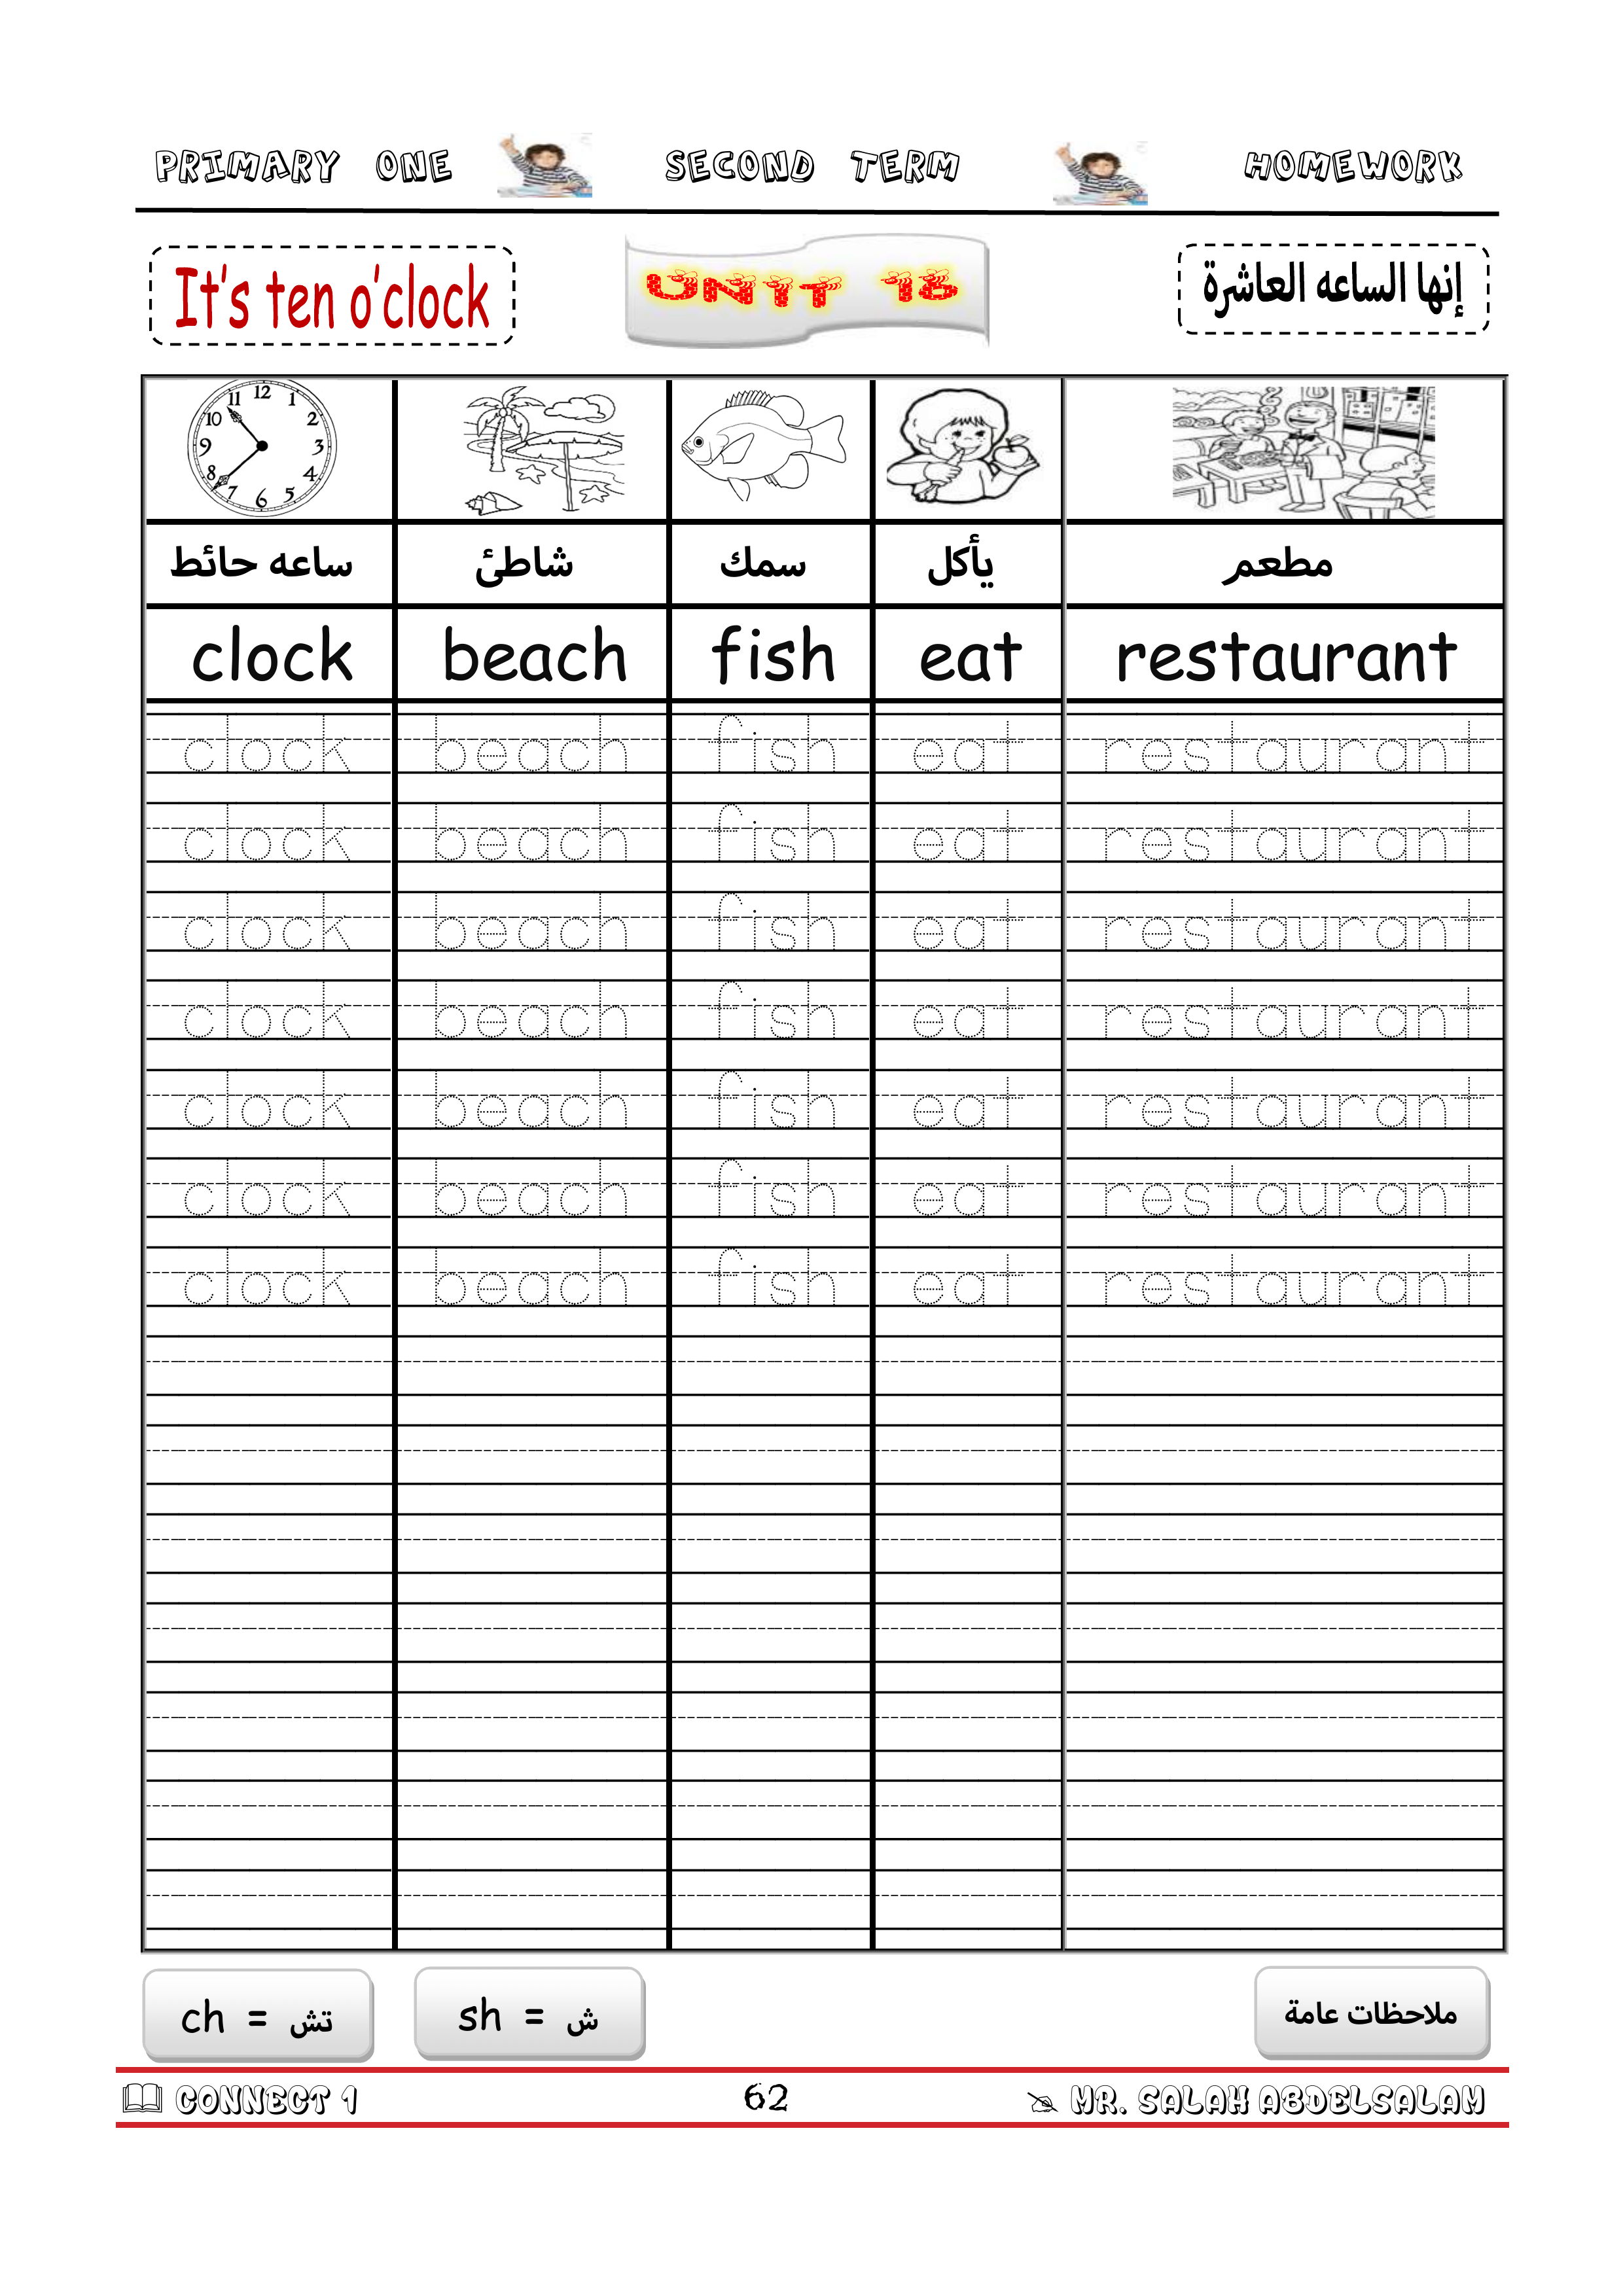 PRIMARY ONE SECOND TERM HOMEWORK
It's ten o'clock UNIT 16 إنها الساعه العاشرة
11 12 1
10 2
9 3
8 4
7 6 5
ساعه حائط شاطئ سمك يأكل مطعم
clock beach fish eat restaurant
clock beach fish eat restaurant
clock beach fish eat restaurant
clock beach fish eat restaurant
clock beach fish eat restaurant
clock beach fish eat restaurant
clock beach fish eat restaurant
clock beach fish eat restaurant
ch = تش sh = ش ملاحظات عامة
CONNECT 1 62 MR. SALAH ABDELSALAM